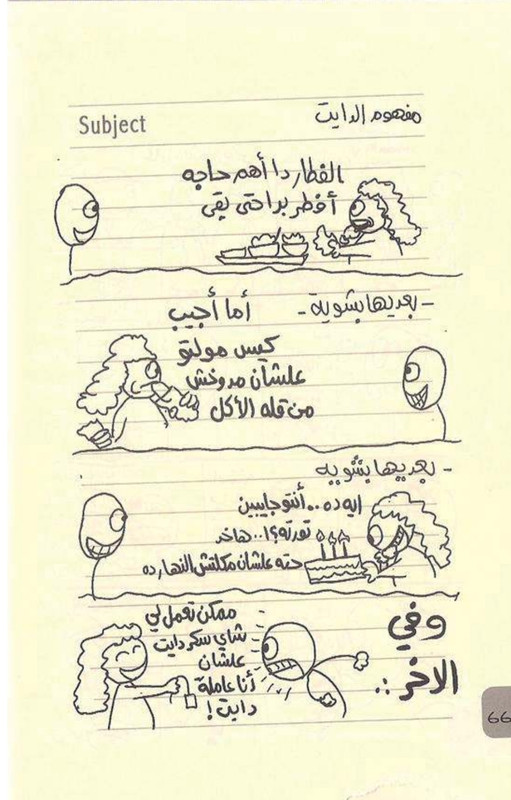 Subject
مفهوم الدايت
الفطار دا أهم حاجه
أفطر براحتى بقى
- بعديها بشوية -
أما أجيب
كيس مولتو
علشان مدوخش
من قله الأكل
- بعديها بشوييه
ايه ده .. أنتو جايبين
تورته؟! ... هاخد
حته علشان مكلتش النهارده
وفي
الآخر :.
ممكن تعمل لي
شاي سكر دايت
علشان
أنا عاملة
دايت !
66